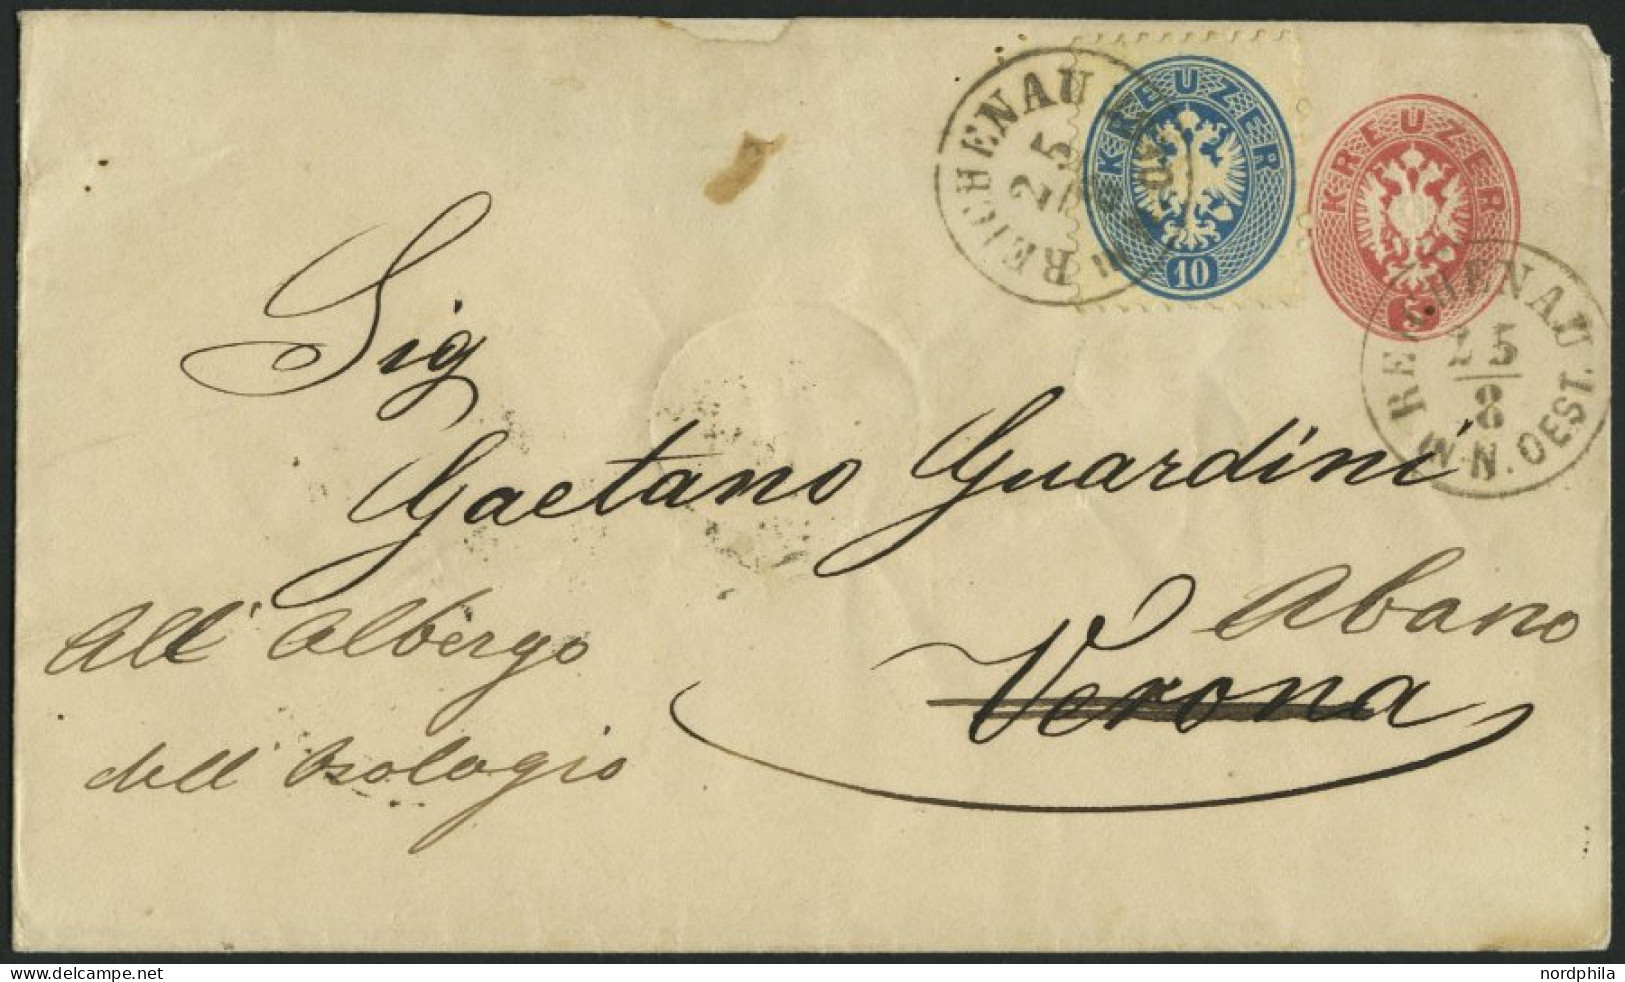 KREUZER
10
KREUZER
5
REICHENAU
25
8
REICHENAU
25
8
N. OEST.
Sig
Gaetano Guardini
Abano
Verona
All' Albergo
dell'
nordphila